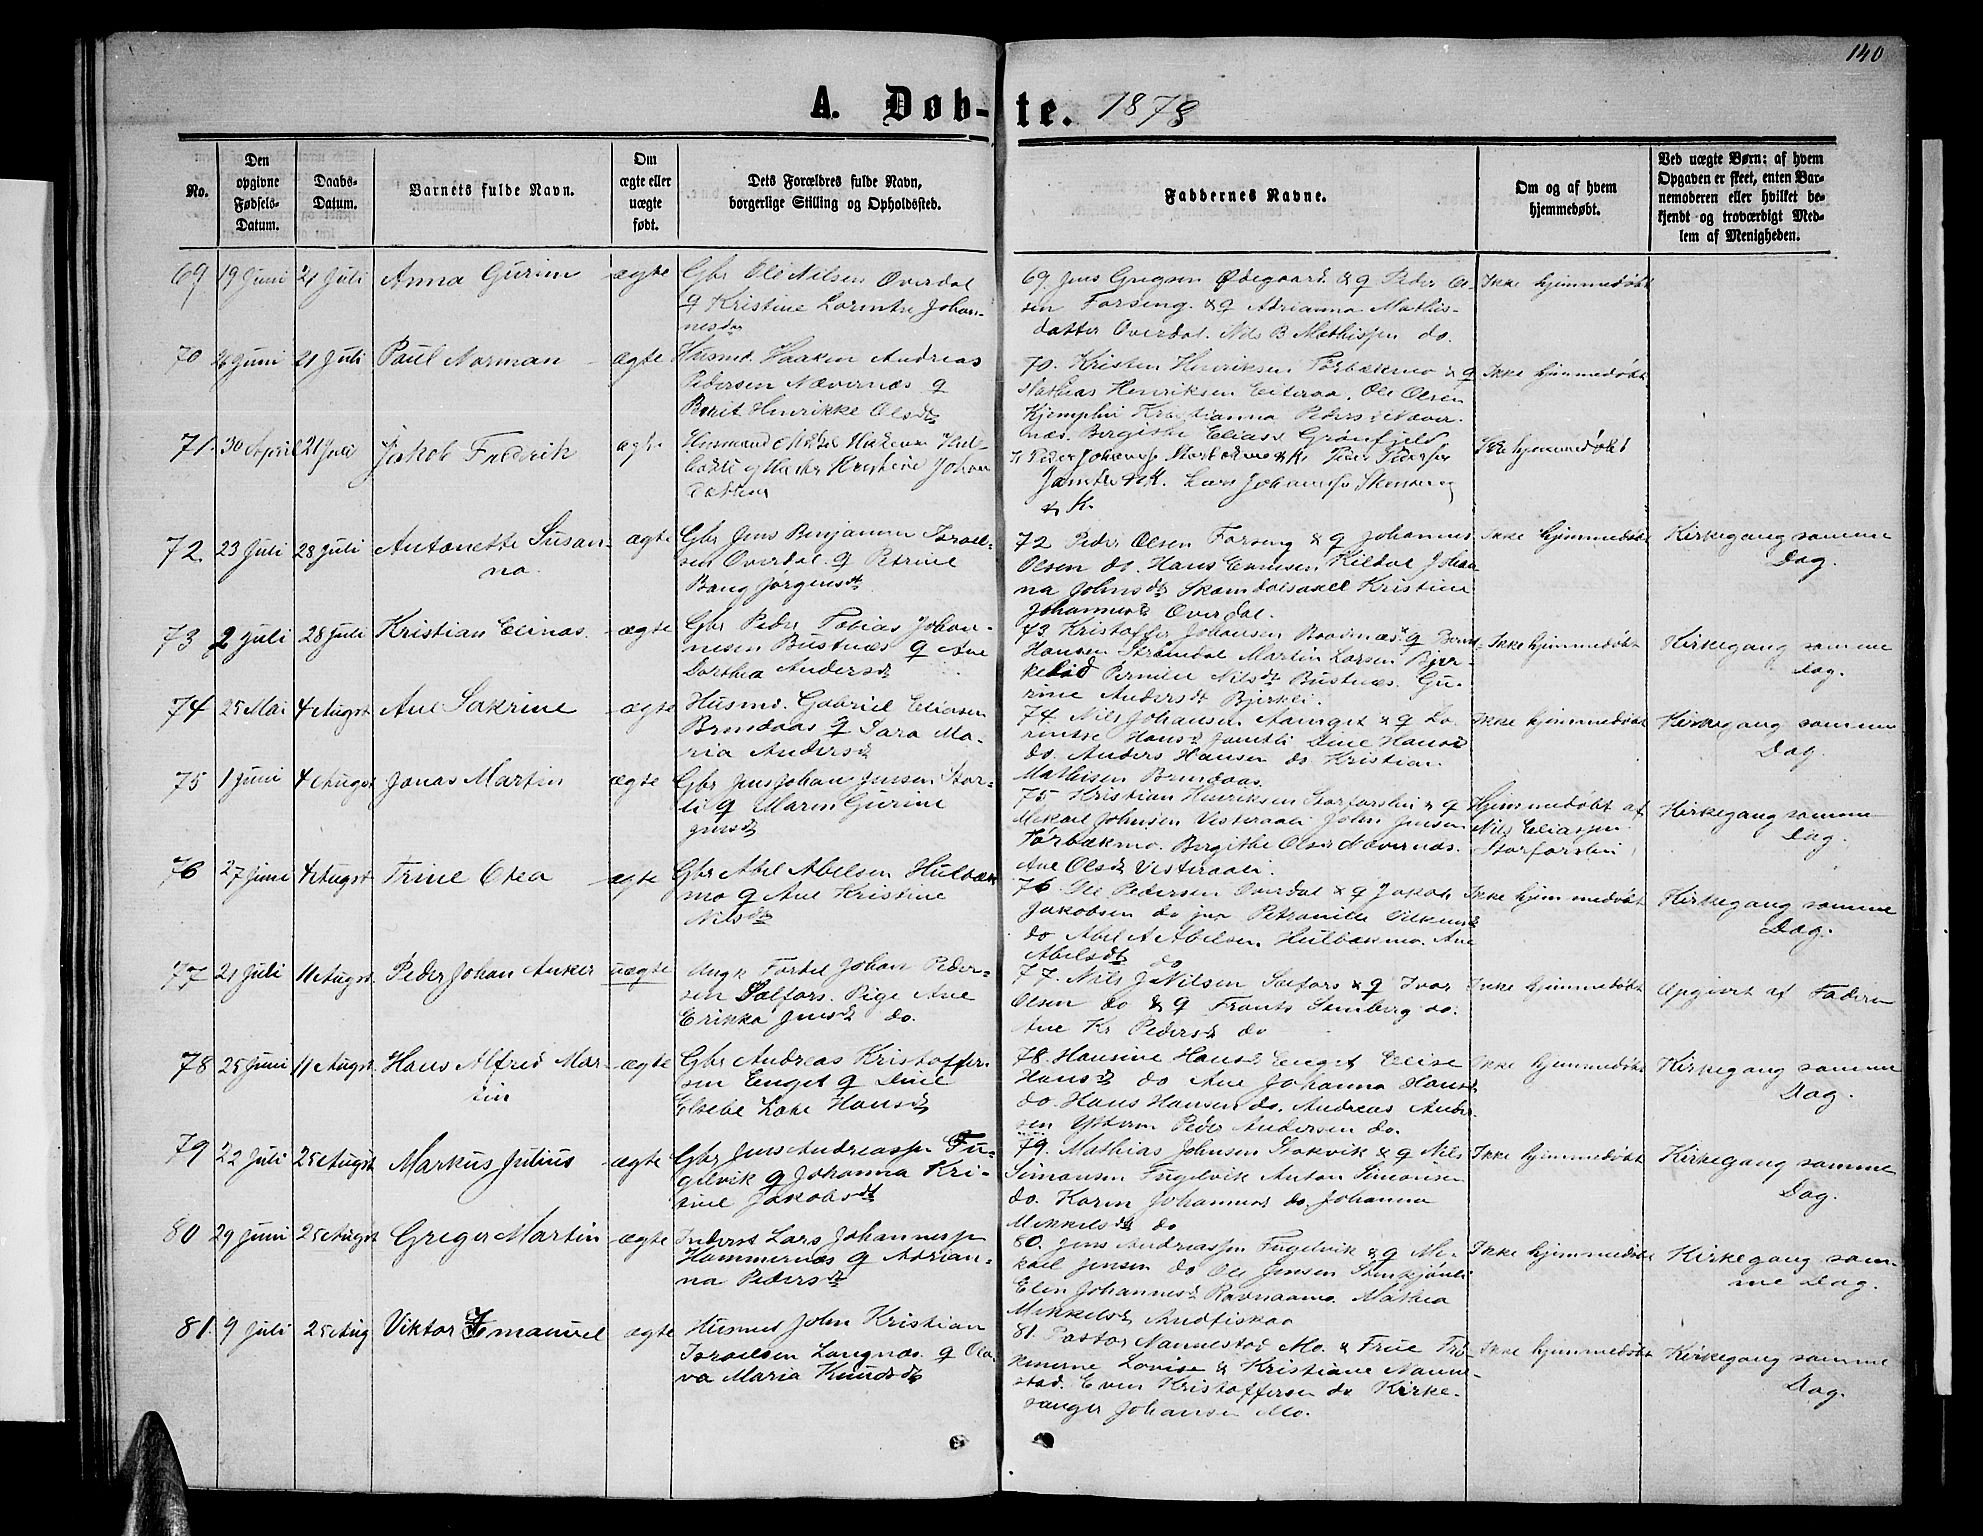 140
A. Døb-te. 1878
No.
Den opgivne Fødsels-Datum.
Daabs-Datum.
Barnets fulde Navn.
Om ægte eller uægte født.
Dets Forældres fulde Navn, borgerlige Stilling og Opholdssted.
Faddernes Navne.
Om og af hvem hjemmedøbt.
Ved uægte Børn: af hvem Opgaven er skeet, enten Barnemoderen eller hvilket bekjendt og troværdigt Medlem af Menigheden.
69 19 Juni 21 Juli Anna Gurine ægte
Gbr Ole Nilsen Overdal
& Kristine Lorentse Johan-
nesdr
69. Jens Gregsen Ødegaard & q Peder Ol-
sen Forseng. & q Adrianna Mathis-
datter Overdal. Nils B Mathissen do.
Ikke hjemmedøbt
70 26 Juni 21 Juli Paul Norman ægte
Husmd. Haaken Andreas
Pedersen Nævernæs q
Berit Henrikke Olsdt
70. Kristen Henriksen Forbækmo & q
Mathias Henriksen Eiteraa, Ole Olsen
Kjemplii Kristianna Peders Næver-
næs. Bergithe Eliasd Grønfjeld
Ikke hjemmedøbt
71. 30 April 21 Juli Jakob Fredrik ægte
Johan
datter
Peder Johans
Ikke hjemmedøbt
72. 23 Juli 28 Juli Antonette Susan-
na.
ægte
Gbr Jens Benjamin Israel-
sen Overdal q Petrine
Bang Jørgensdt
72 Peder Olsen Forseng & q Johannes
Olsen do. Hans Enensen Kildal Johan
na Johnsdt Skamdalsaxel Kristine
Johannesdt Overdal.
Ikke hjemmedøbt
Kirkegang samme
Dag.
73 2 Juli 28 Juli Kristian Elinas. ægte
Gbr Peder Tobias Johan-
nesen Bustnæs q Ane
Dorthea Andersdt
73 Kristoffer Johansen Baadnæs q Bernt
Hansen Strømdal Martin Larsen Bjer-
kelid Pernille Nilsdt Bustnæs. Gu-
rine Andersdt Bjerkli.
Ikke hjemmedøbt
Kirkegang samme
Dag.
74 25 Mai 4 Augst Ane Sakrine ægte
Husmd. Gabriel Eliasen
Brendaas q Sara Ma-
ria Andersdt
74. Nils Johansen Aanget & q Lo-
rentse Hansd Jamtli Dine Hansd
do. Anders Hansen do Kristian
Mathisen Brendaas.
Ikke hjemmedøbt
Kirkegang samme
Dag.
75 1 Juni 4 Augst Jonas Martin ægte
Gbr Jens Johan Jensen Stor-
li q Maren Gurine
Jensdt
75 Kristian Henriksen Storforshei & q
Mikael Johnsen Vesteraali John Jensen
Forbækmo. Bergithe Olsd Nævernæs.
Ane Olsd Vesteraali.
Hjemmedøbt af
Nils Eliassen
Storforshei
Kirkegang samme
Dag.
76 27 Juni 4 Augst Trine Olea ægte
Gbr Abel Abelsen Hulbæk
mo q Ane Kristine
Nilsdt
76 Ole Pedersen Overdal & q Jakob
Jakobsen do jnr Petronille
do Abel A Abelsen Hulbækmo. Ane
Abelsdt do
Ikke hjemmedøbt
Kirkegang samme
Dag.
77 21 Juli 11 Augst. Peder Johan Anker uægte
Ungk Fortel Johan Peder-
sen Selfors. Pige Ane
Erikka Jensd do.
77. Nils J Nilsen Selfors & q Ivar
Olsen do & q Frants Stenberg do.
Ane Kr Pedersd do
Ikke hjemmedøbt
Opgivet af Faderen
78 25 Juni 11 Augst. Hans Alfred Mar-
tin
ægte
Gbr Andreas Kristoffer-
sen Enget q Dine
Elsebe Lake Hansdt
78. Hansine Hansd Enget Elise
Hansdt do Ane Johanna Hansd
do. Hans Hansen do. Andreas Ander
sen Ytteren Peder Andersen do.
Ikke hjemmedøbt
Kirkegang samme
Dag.
79 22 Juli 25 Augst Markus Julius ægte
Gbr Jens Andreassen Fu-
gelvik q Johanna Kri-
stine Jakobsdt
79. Mathias Johnsen Stokvik & q Nils
Simonsen Fugelvik Anton Simonsen
do. Karen Johannesd do, Johanna
Mekkelsdt do
Ikke hjemmedøbt
Kirkegang samme
Dag.
80 29 Juni 25 Augst Greger Martin ægte
Inderst Lars Johannessen
Hammernæs q Adrian-
na Pedersdt
80. Jens Andreassen Fugelvik & q Mi-
kael Jensen do Ole Jensen Stenkjønli
Elen Johannesd Ravnaamo. Mathea
Mekkelsd Andfiskaa
Ikke hjemmedøbt
Kirkegang sam-
me Dag.
81. 9 Juli 25 Aug Viktor Emanuel ægte
Husmd John Kristian
Israelsen Langnæs. q Ola-
va Maria Knudsdt
81. Pastor Nannestad Mo. & Frue Frø-
knerne Lovise & Kristiane Nanne-
stad. Even Kristoffersen do Kirke-
sanger Johansen Mo.
Ikke hjemmedøbt
Kirkegang samme
Dag.